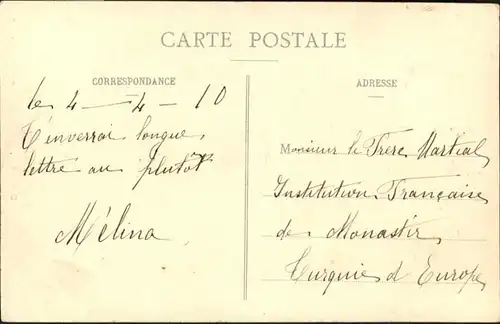 CARTE POSTALE
CORRESPONDANCE
le 4 - 4 - 10
T'enverrai longue
lettre au plutot
Mélina
ADRESSE
Monsieur le Frere Martial
Institution Française
de Monastir
Turquie d'Europe